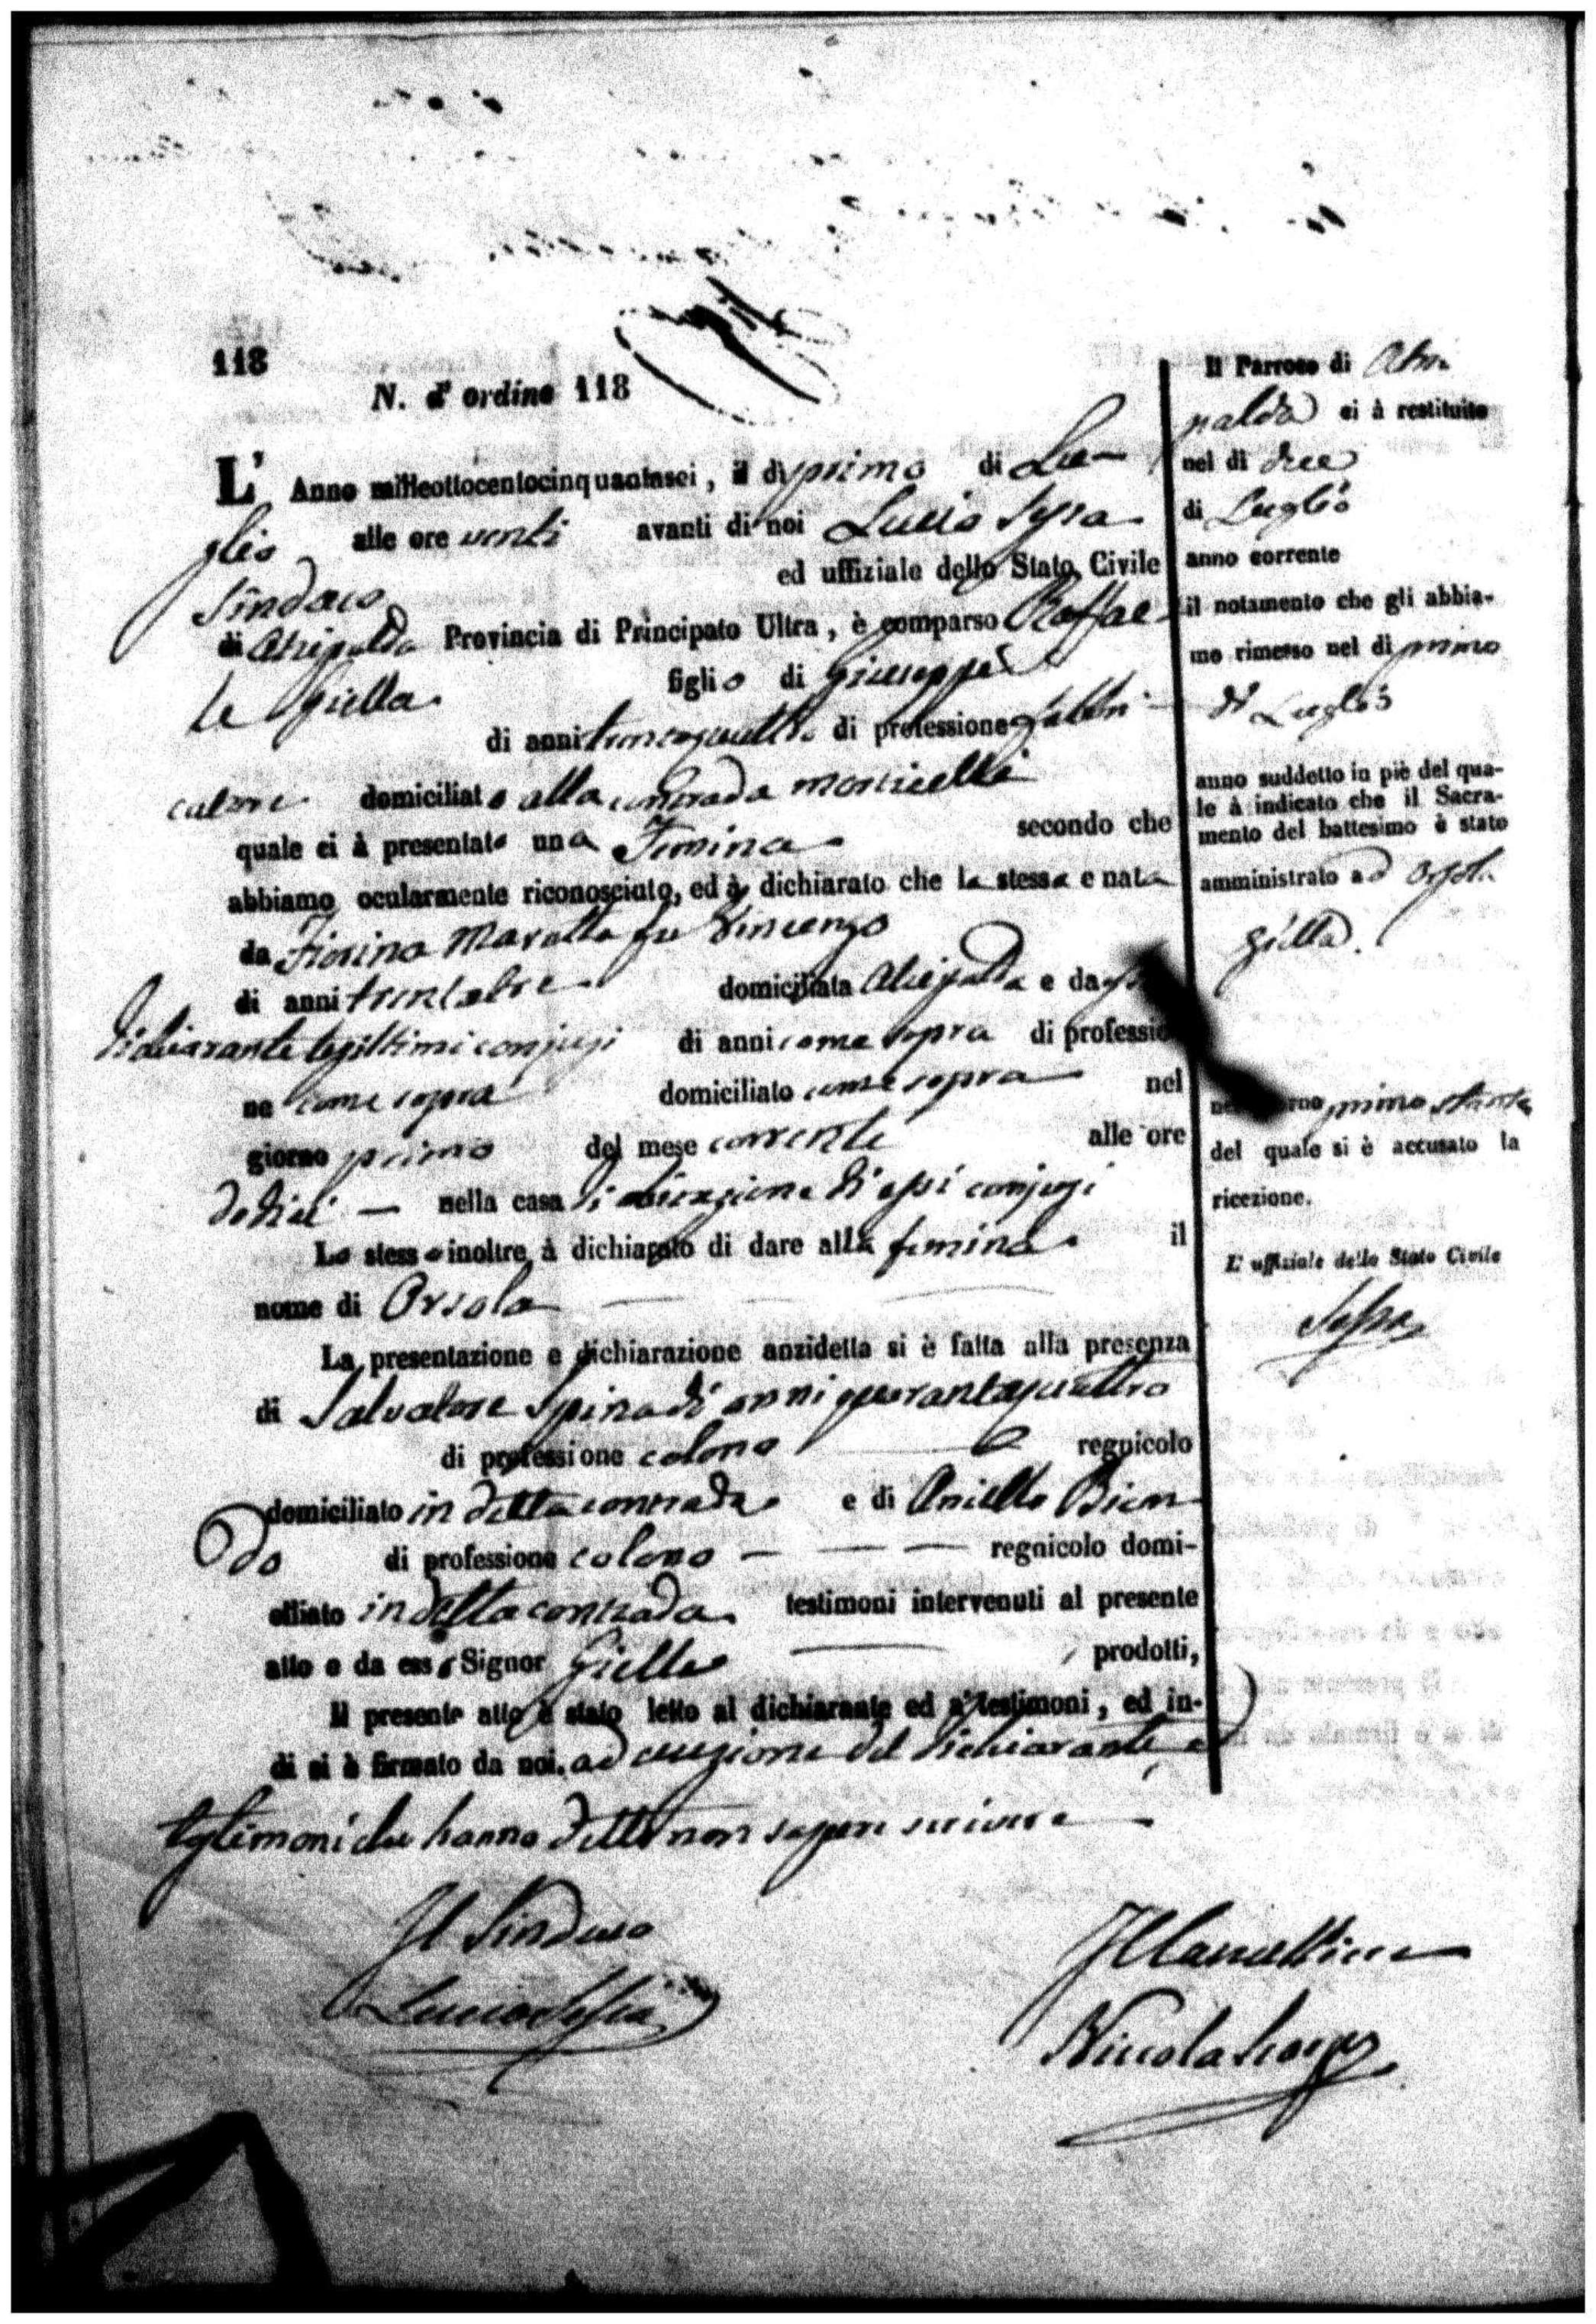 118
N. d'ordine 118
L' Anno milleottocentocinquantasei, il dì primo di Lu-
glio alle ore venti avanti di noi Lucio
Sindaco ed uffiziale dello Stato Civile
di Atripalda Provincia di Principato Ultra, è comparso Raffae-
le Giella figlio di Giuseppe
di anni di professione
domiciliato alla contrada monticelli
quale ci à presentato una Femina secondo che
abbiamo ocularmente riconosciuto, ed à dichiarato che la stessa e nata
da Fiorina Marotta fu Vincenzo
di anni trentatre domiciliata Atripalda e da
dichiarante legittimi conjugi di anni come sopra di professio
ne come sopra domiciliato come sopra nel
giorno primo del mese corrente alle ore
dodici — nella casa di abitazione di essi conjugi
Lo stesso inoltre à dichiarato di dare alla femina il
nome di Orsola
La presentazione e dichiarazione anzidetta si è fatta alla presenza
di Salvatore Spina di anni quarantaquattro
di professione colono regnicolo
domiciliato in detta contrada e di Aniello Bion
do di professione colono — — — regnicolo domi-
ciliato in detta contrada testimoni intervenuti al presente
atto e da esso Signor Giella prodotti,
Il presente atto è stato letto al dichiarante ed a' testimoni, ed in-
di si è firmato da noi. ad eccezione del dichiarante e
testimoni che hanno detto non sapere scrivere
Il Sindaco
Lucio
Il Cancelliere
Niccola
Il Parroco di Atri
palda ci à restituito
nel dì due
di Luglio
anno corrente
il notamento che gli abbia-
mo rimesso nel dì primo
di Luglio
anno suddetto in piè del qua-
le à indicato che il Sacra-
mento del battesimo è stato
amministrato ad Orsola
Giella.
primo stante
del quale si è accusato la
ricezione.
L' uffiziale dello Stato Civile